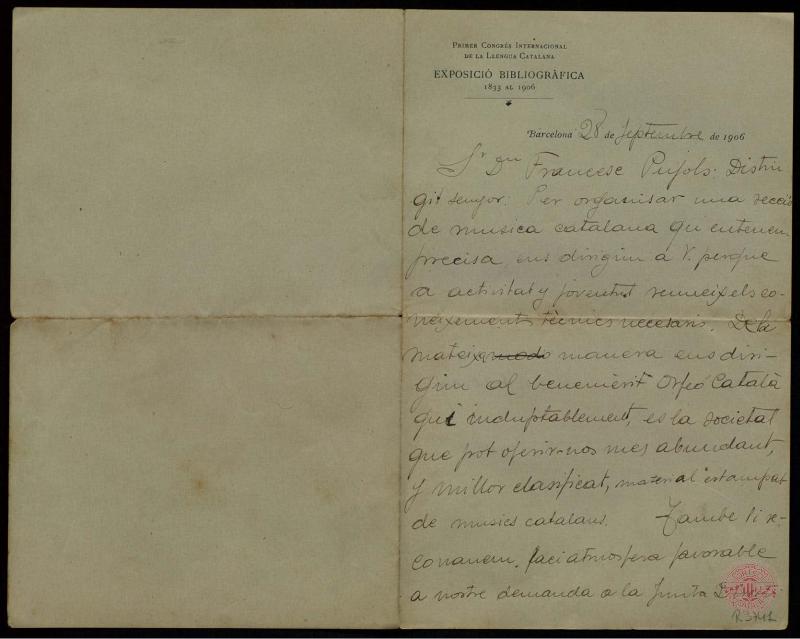 Primer Congrés Internacional
de la Llengua Catalana
EXPOSICIÓ BIBLIOGRÀFICA
1833 AL 1906
Barcelona 28 de Septembre de 1906
Sr Dn Francesc Pujols: Distin
git senyor: Per organisar una secció
de musica catalana qu'entenem
precisa, ens dirigim á V. perque
a activitat y joventut reuneix els co-
neixements tècnics necesaris. De la
mateixa modo manera ens diri-
gim al benemèrit Orfeó Català
qui induptablement, es la societat
que pot oferir-nos mes abundant,
y millor clasificat, material estampat
de musics catalans. Tambe li re-
comanem, faci atmosfera favorable
a nostre demanda a la Junta